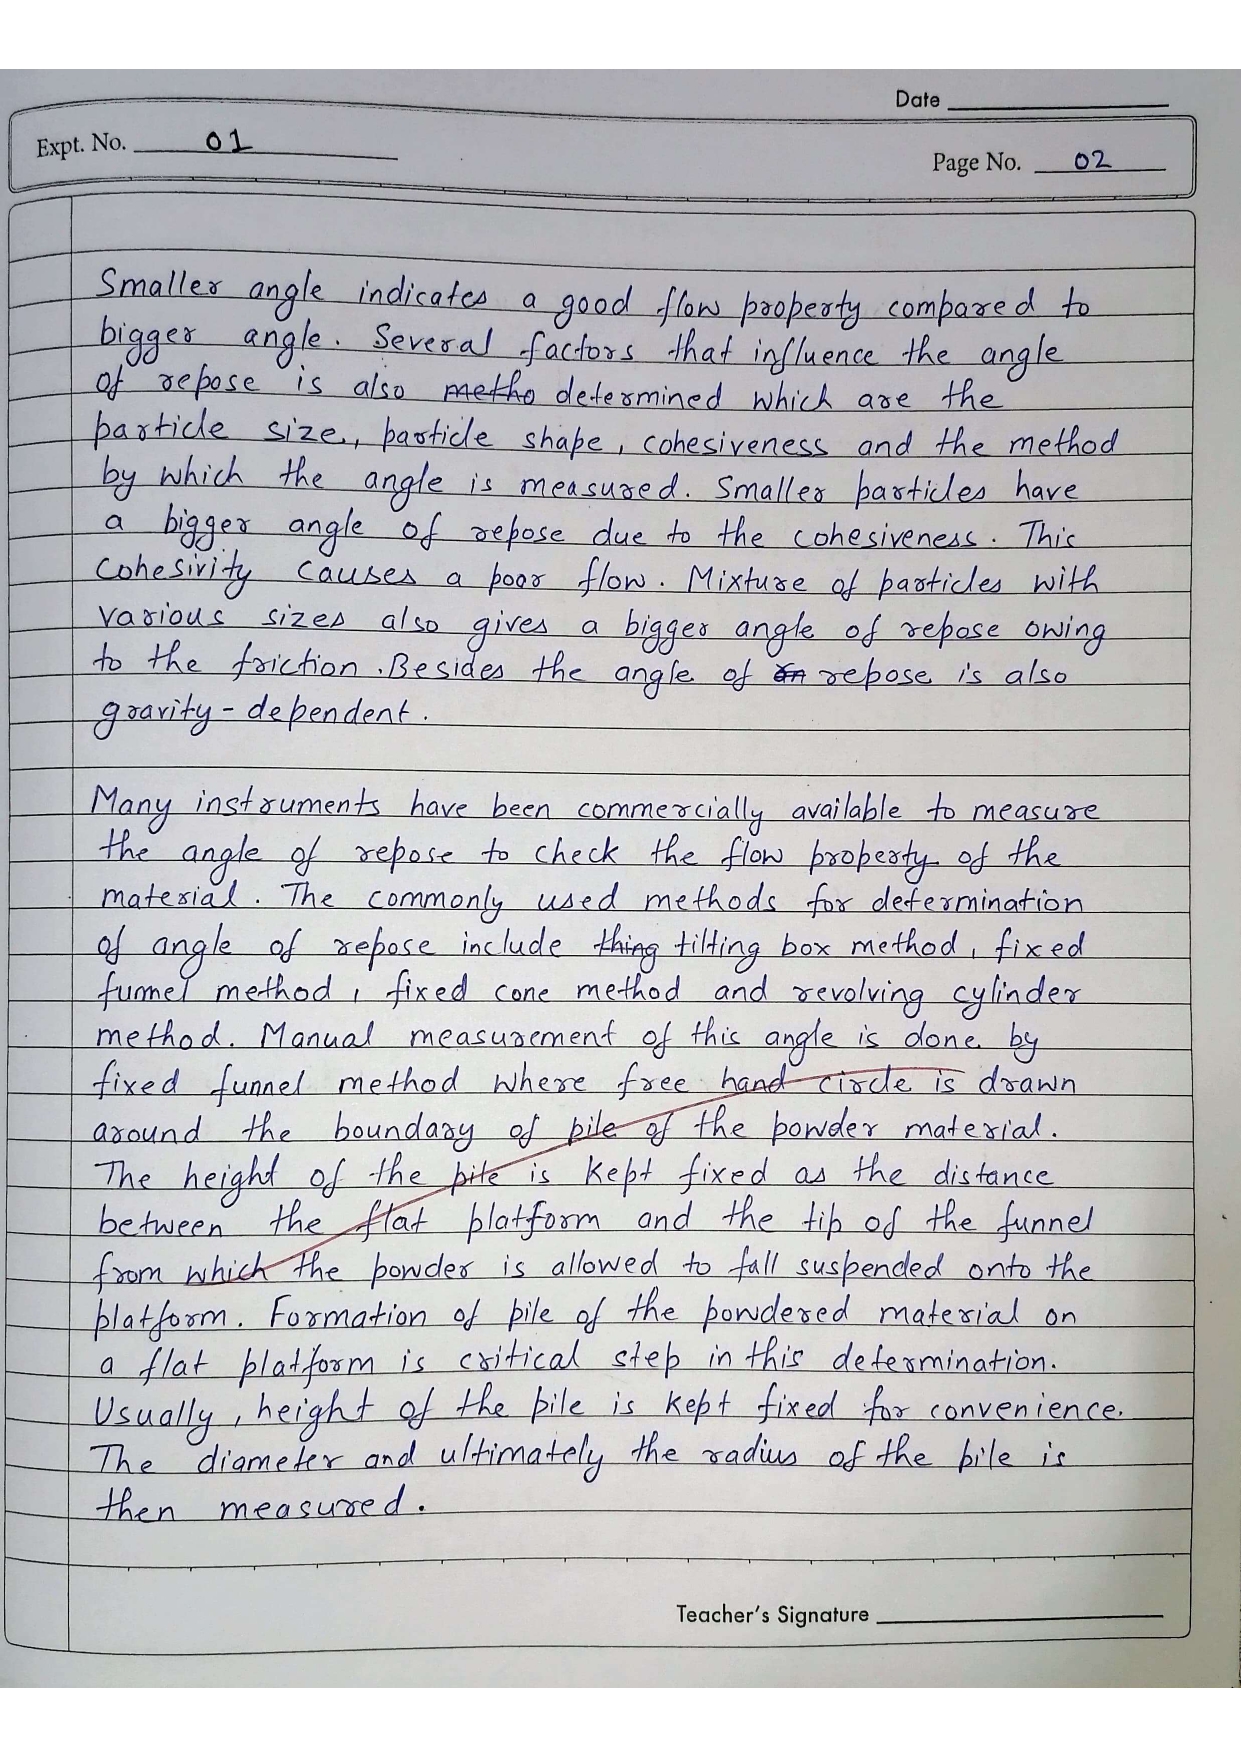 Date
Expt. No. 01
Page No. 02
Smaller angle indicates a good flow property compared to
bigger angle. Several factors that influence the angle
of repose is also metho determined which are the
particle size, particle shape, cohesiveness and the method
by which the angle is measured. Smaller particles have
a bigger angle of repose due to the cohesiveness. This
cohesivity causes a poor flow. Mixture of particles with
various sizes also gives a bigger angle of repose owing
to the friction. Besides the angle of repose is also
gravity-dependent.
Many instruments have been commercially available to measure
the angle of repose to check the flow property of the
material. The commonly used methods for determination
of angle of repose include thing tilting box method, fixed
funnel method, fixed cone method and revolving cylinder
method. Manual measurement of this angle is done by
fixed funnel method where free hand circle is drawn
around the boundary of pile of the powder material.
The height of the pile is kept fixed as the distance
between the flat platform and the tip of the funnel
from which the powder is allowed to fall suspended onto the
platform. Formation of pile of the powdered material on
a flat platform is critical step in this determination.
Usually, height of the pile is kept fixed for convenience.
The diameter and ultimately the radius of the pile is
then measured.
Teacher's Signature